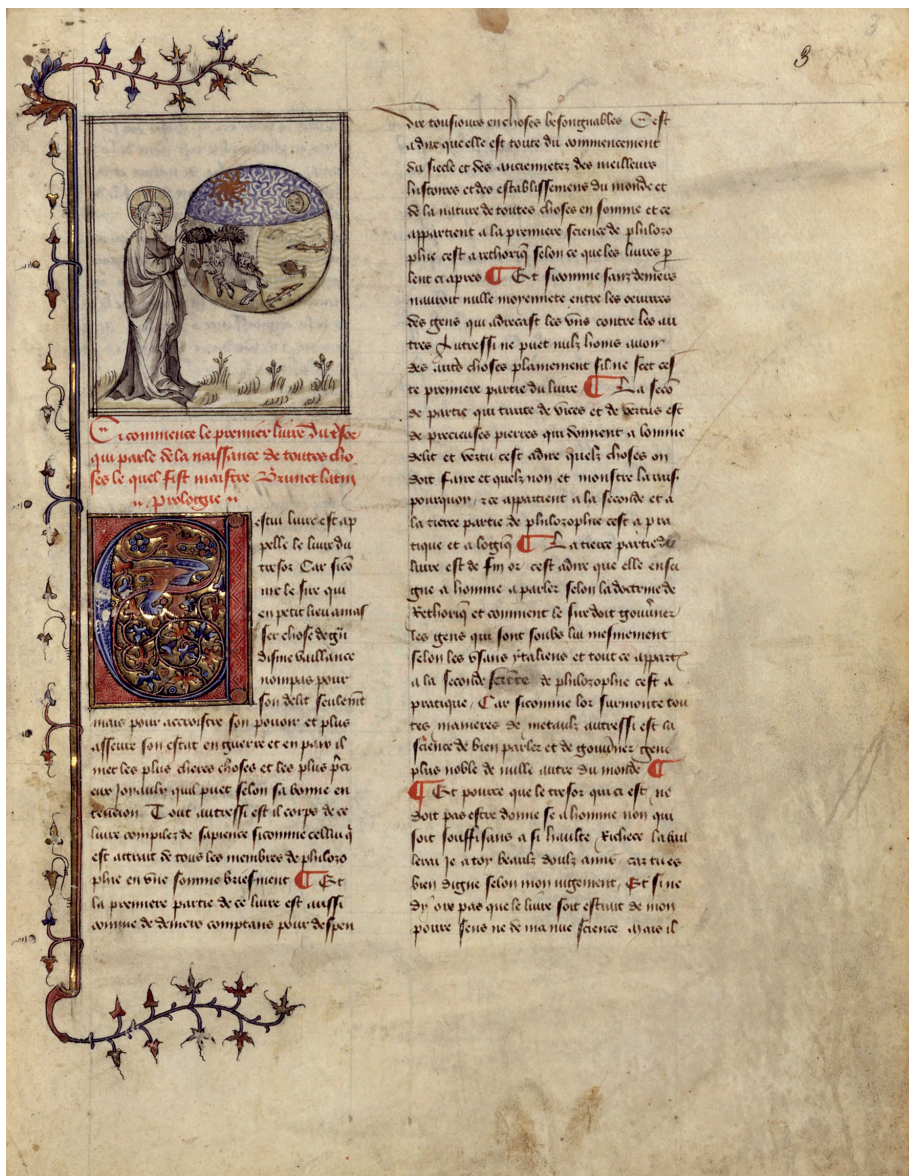 3
3
Ci commence le premier livre du tresor
qui parle de la naissance de toutes cho
ses le quel fist maistre Brunet latin
Prologue
Cestui livre est ap
pelle le livre du
tresor Car sicom
me le sire qui
en petit lieu amas
ser chose de gñ
disme vaillance
nompas pour
son delit seulemt
mais pour accroistre son pouoir et plus
asseur son estat en guerre et en paix il
met les plus chieres choses et les plus pci
eux Joyaulx quil puet selon sa bonne en
tencion Tout autressi est il corps de ce
livre compilez de sapience sicomme cellui q
est attrait de tous les membres de philozo
phie en vne somme briefment ¶ Et
la premiere partie de ce livre est aussi
comme de deniers comptans pour despen
dre tousiours en choses besongnables Cest
a dire que elle est toute du commencement
du siecle et des anciennetez des meilleurs
histoires et des establissemens du monde et
de la nature de toutes choses en somme et ce
appartient a la premiere science de philozo
phie cest a rethoriq selon ce que les livres p
lent ci apres ¶ Et sicomme sanz deniers
nauroit nulle moyennete entre les oeuvres
des gens qui adrecast les vns contre les au
tres Autressi ne puet nulz homs auoir
des autres choses plainement sil ne scet ces
te premiere partie du livre ¶ La secon
de partie qui traite de vices et de vertus est
de precieuses pierres qui donnent a lomme
delit et vertu cest a dire quelz choses on
doit faire et quelz non et monstre la rais
pourquoy, et ce appartient a la seconde et a
la tierce partie de philozophie cest a pra
tique et a logiq ¶ La tierce partie du
livre est de fin or, cest a dire que elle ensei
gne a homme a parler selon la doctrine de
Rethoriq et comment le sire doit gouuner
les gens qui sont soubs lui mesmement
selon les vsans ytaliens et tout ce appart
a la seconde science de philozophie cest a
pratique, Car sicomme lor surmonte tou
tes manieres de metaulx autressi est la
science de bien parler et de gouuner gens
plus noble de nulle autre du monde ¶
¶ Et pource que le tresor qui ci est, ne
doit pas estre donne se a homme non qui
soit souffisans a si haulte Richece la bail
lerai je a toy beaulx doulz amis car tu es
bien digne selon mon iugement, Et si ne
dy ore pas que le livre soit estrait de mon
poure sens ne de ma nue science Mais il